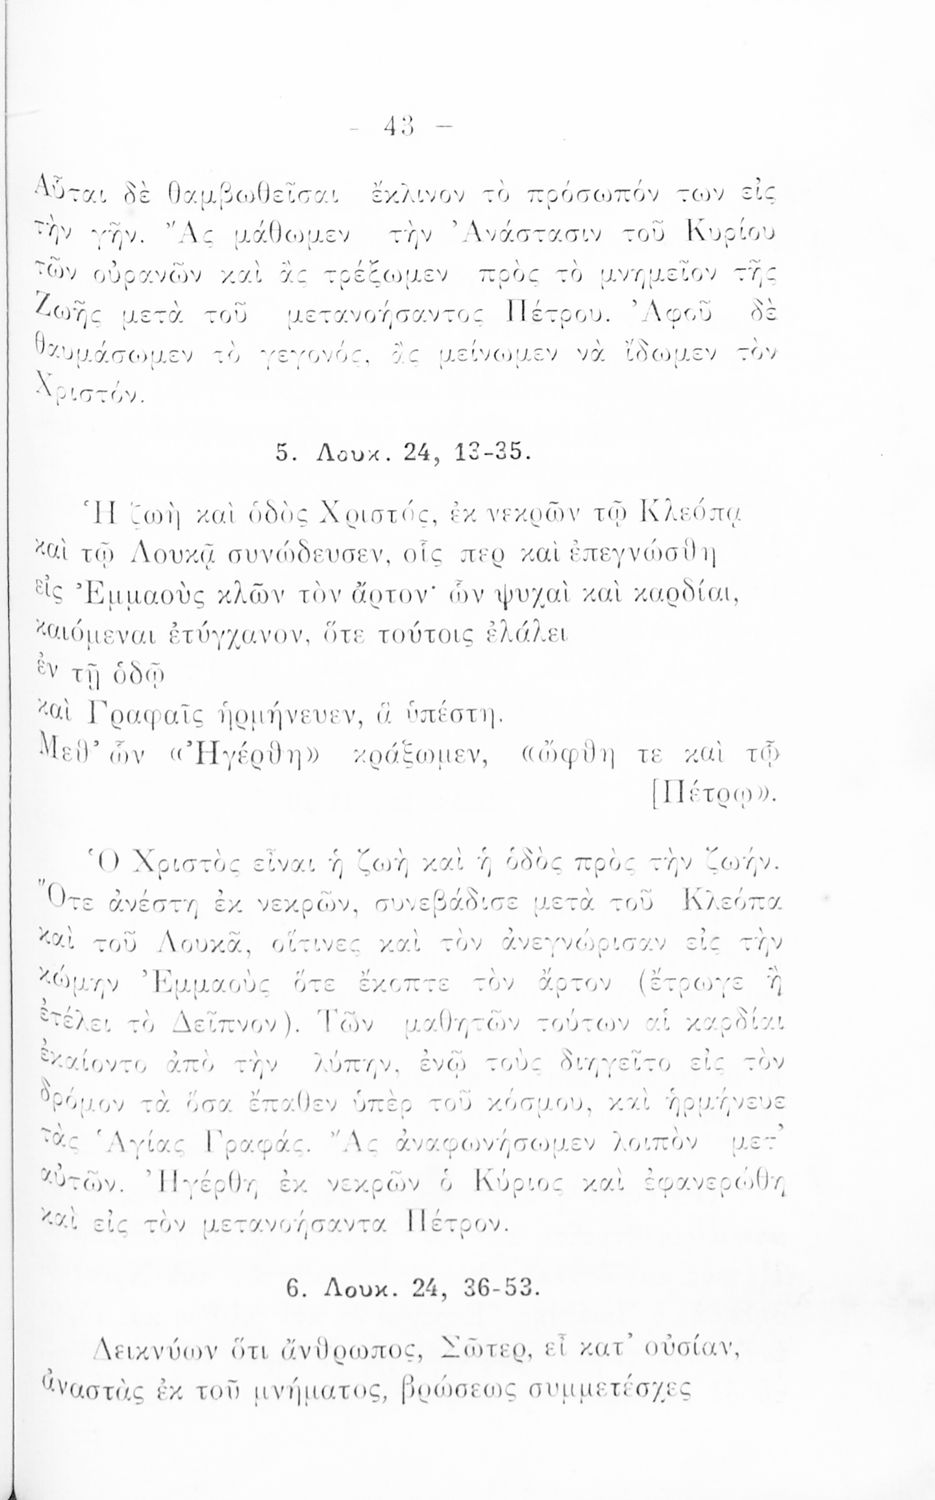 - 43 -
Αὗται δὲ θαμβωθεῖσαι ἔκλινον τὸ πρόσωπόν των εἰς
τὴν γῆν. Ἂς μάθωμεν τὴν Ἀνάστασιν τοῦ Κυρίου
τῶν οὐρανῶν καὶ ἂς τρέξωμεν πρὸς τὸ μνημεῖον τῆς
Ζωῆς μετὰ τοῦ μετανοήσαντος Πέτρου. Ἀφοῦ δὲ
θαυμάσωμεν τὸ γεγονός, ἂς μείνωμεν νὰ ἴδωμεν τὸν
Χριστόν.
5. Λουκ. 24, 13-35.
Ἡ ζωὴ καὶ ὁδὸς Χριστός, ἐκ νεκρῶν τῷ Κλεόπᾳ
καὶ τῷ Λουκᾷ συνώδευσεν, οἷς περ καὶ ἐπεγνώσθη
εἰς Ἐμμαοὺς κλῶν τὸν ἄρτον· ὧν ψυχαὶ καὶ καρδίαι,
καιόμεναι ἐτύγχανον, ὅτε τούτοις ἐλάλει
ἐν τῇ ὁδῷ
καὶ Γραφαῖς ἡρμήνευεν, ἃ ὑπέστη.
Μεθ’ ὧν «Ἠγέρθη» κράξωμεν, «ὤφθη τε καὶ τῷ
[Πέτρῳ».
Ὁ Χριστὸς εἶναι ἡ ζωὴ καὶ ἡ ὁδὸς πρὸς τὴν ζωήν.
Ὅτε ἀνέστη ἐκ νεκρῶν, συνεβάδισε μετὰ τοῦ Κλεόπα
καὶ τοῦ Λουκᾶ, οἵτινες καὶ τὸν ἀνεγνώρισαν εἰς τὴν
κώμην Ἐμμαοὺς ὅτε ἔκοπτε τὸν ἄρτον (ἔτρωγε ἢ
ἐτέλει τὸ Δεῖπνον). Τῶν μαθητῶν τούτων αἱ καρδίαι
ἐκαίοντο ἀπὸ τὴν λύπην, ἐνῷ τοὺς διηγεῖτο εἰς τὸν
δρόμον τὰ ὅσα ἔπαθεν ὑπὲρ τοῦ κόσμου, καὶ ἡρμήνευε
τὰς Ἁγίας Γραφάς. Ἂς ἀναφωνήσωμεν λοιπὸν μετ’
αὐτῶν. Ἠγέρθη ἐκ νεκρῶν ὁ Κύριος καὶ ἐφανερώθη
καὶ εἰς τὸν μετανοήσαντα Πέτρον.
6. Λουκ. 24, 36-53.
Δεικνύων ὅτι ἄνθρωπος, Σῶτερ, εἶ κατ’ οὐσίαν,
ἀναστὰς ἐκ τοῦ μνήματος, βρώσεως συμμετέσχες